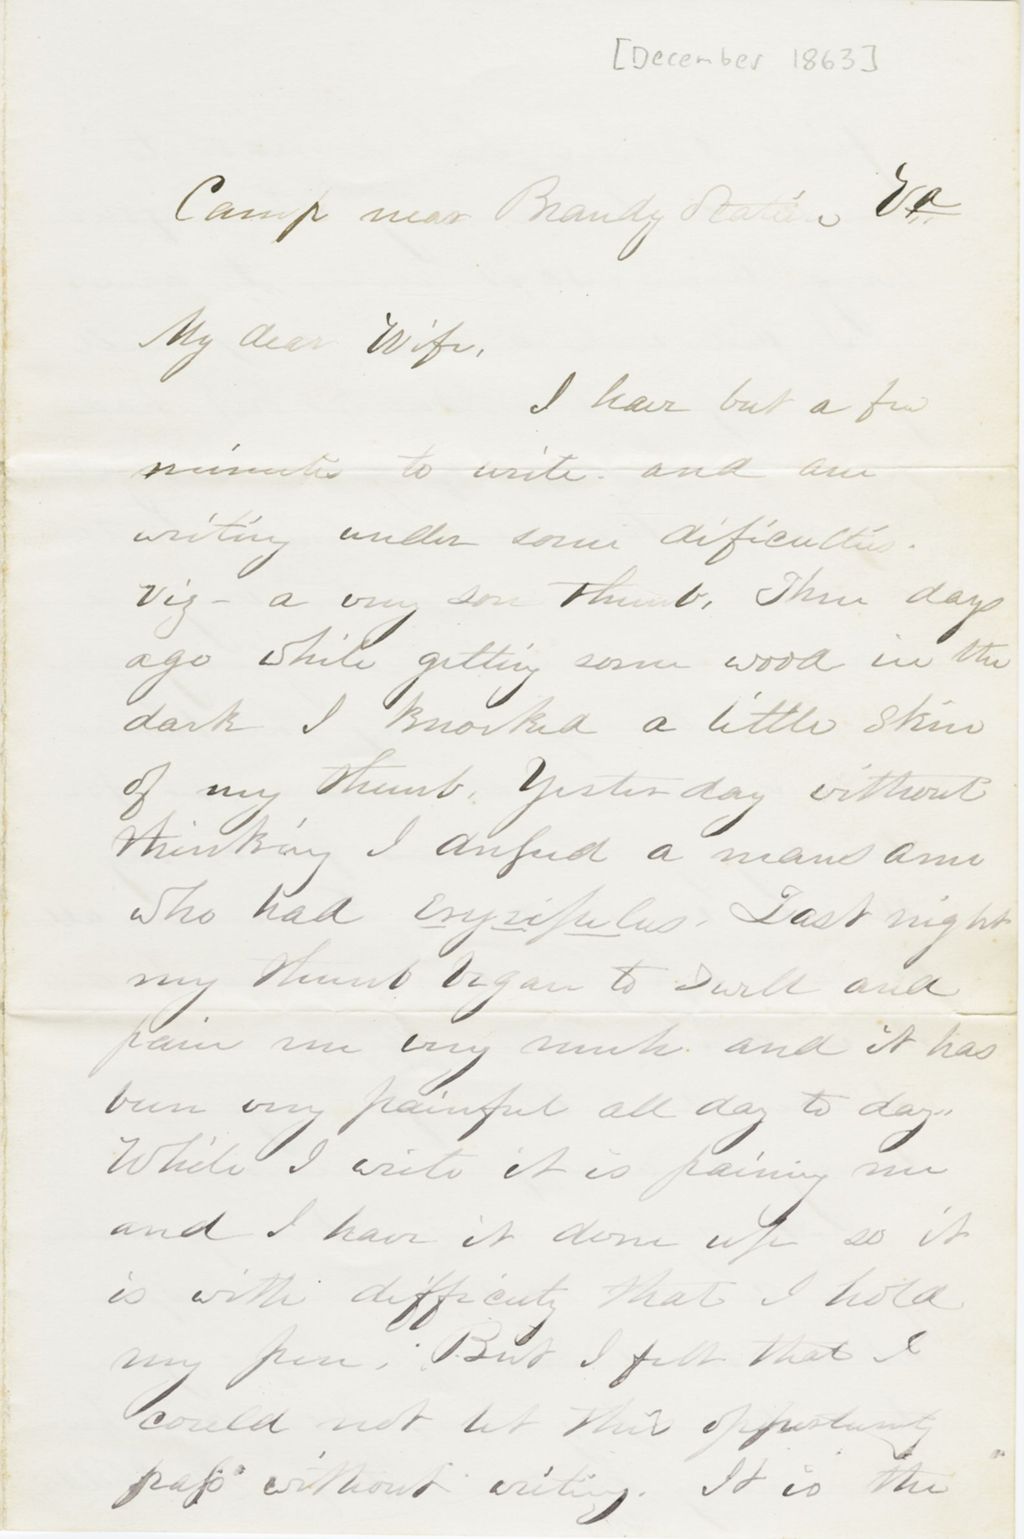 [December 1863]
Camp near Brandy Station Va
My dear Wife,
I have but a few
minutes to write. and am
writing under some dificulties.
Viz - a very sore thumb. Three days
ago while getting some wood in the
dark I knocked a little skin
of my thumb. Yesterday without
thinking I dressed a mans arm
who had Erysipelas. Last night
my thumb began to swell and
pain me very much. and it has
been very painful all day to day.
While I write it is paining me
and I have it done up so it
is with difficuty that I hold
my pen. But I felt that I
could not let this oppurtunity
pass without writing. It is the